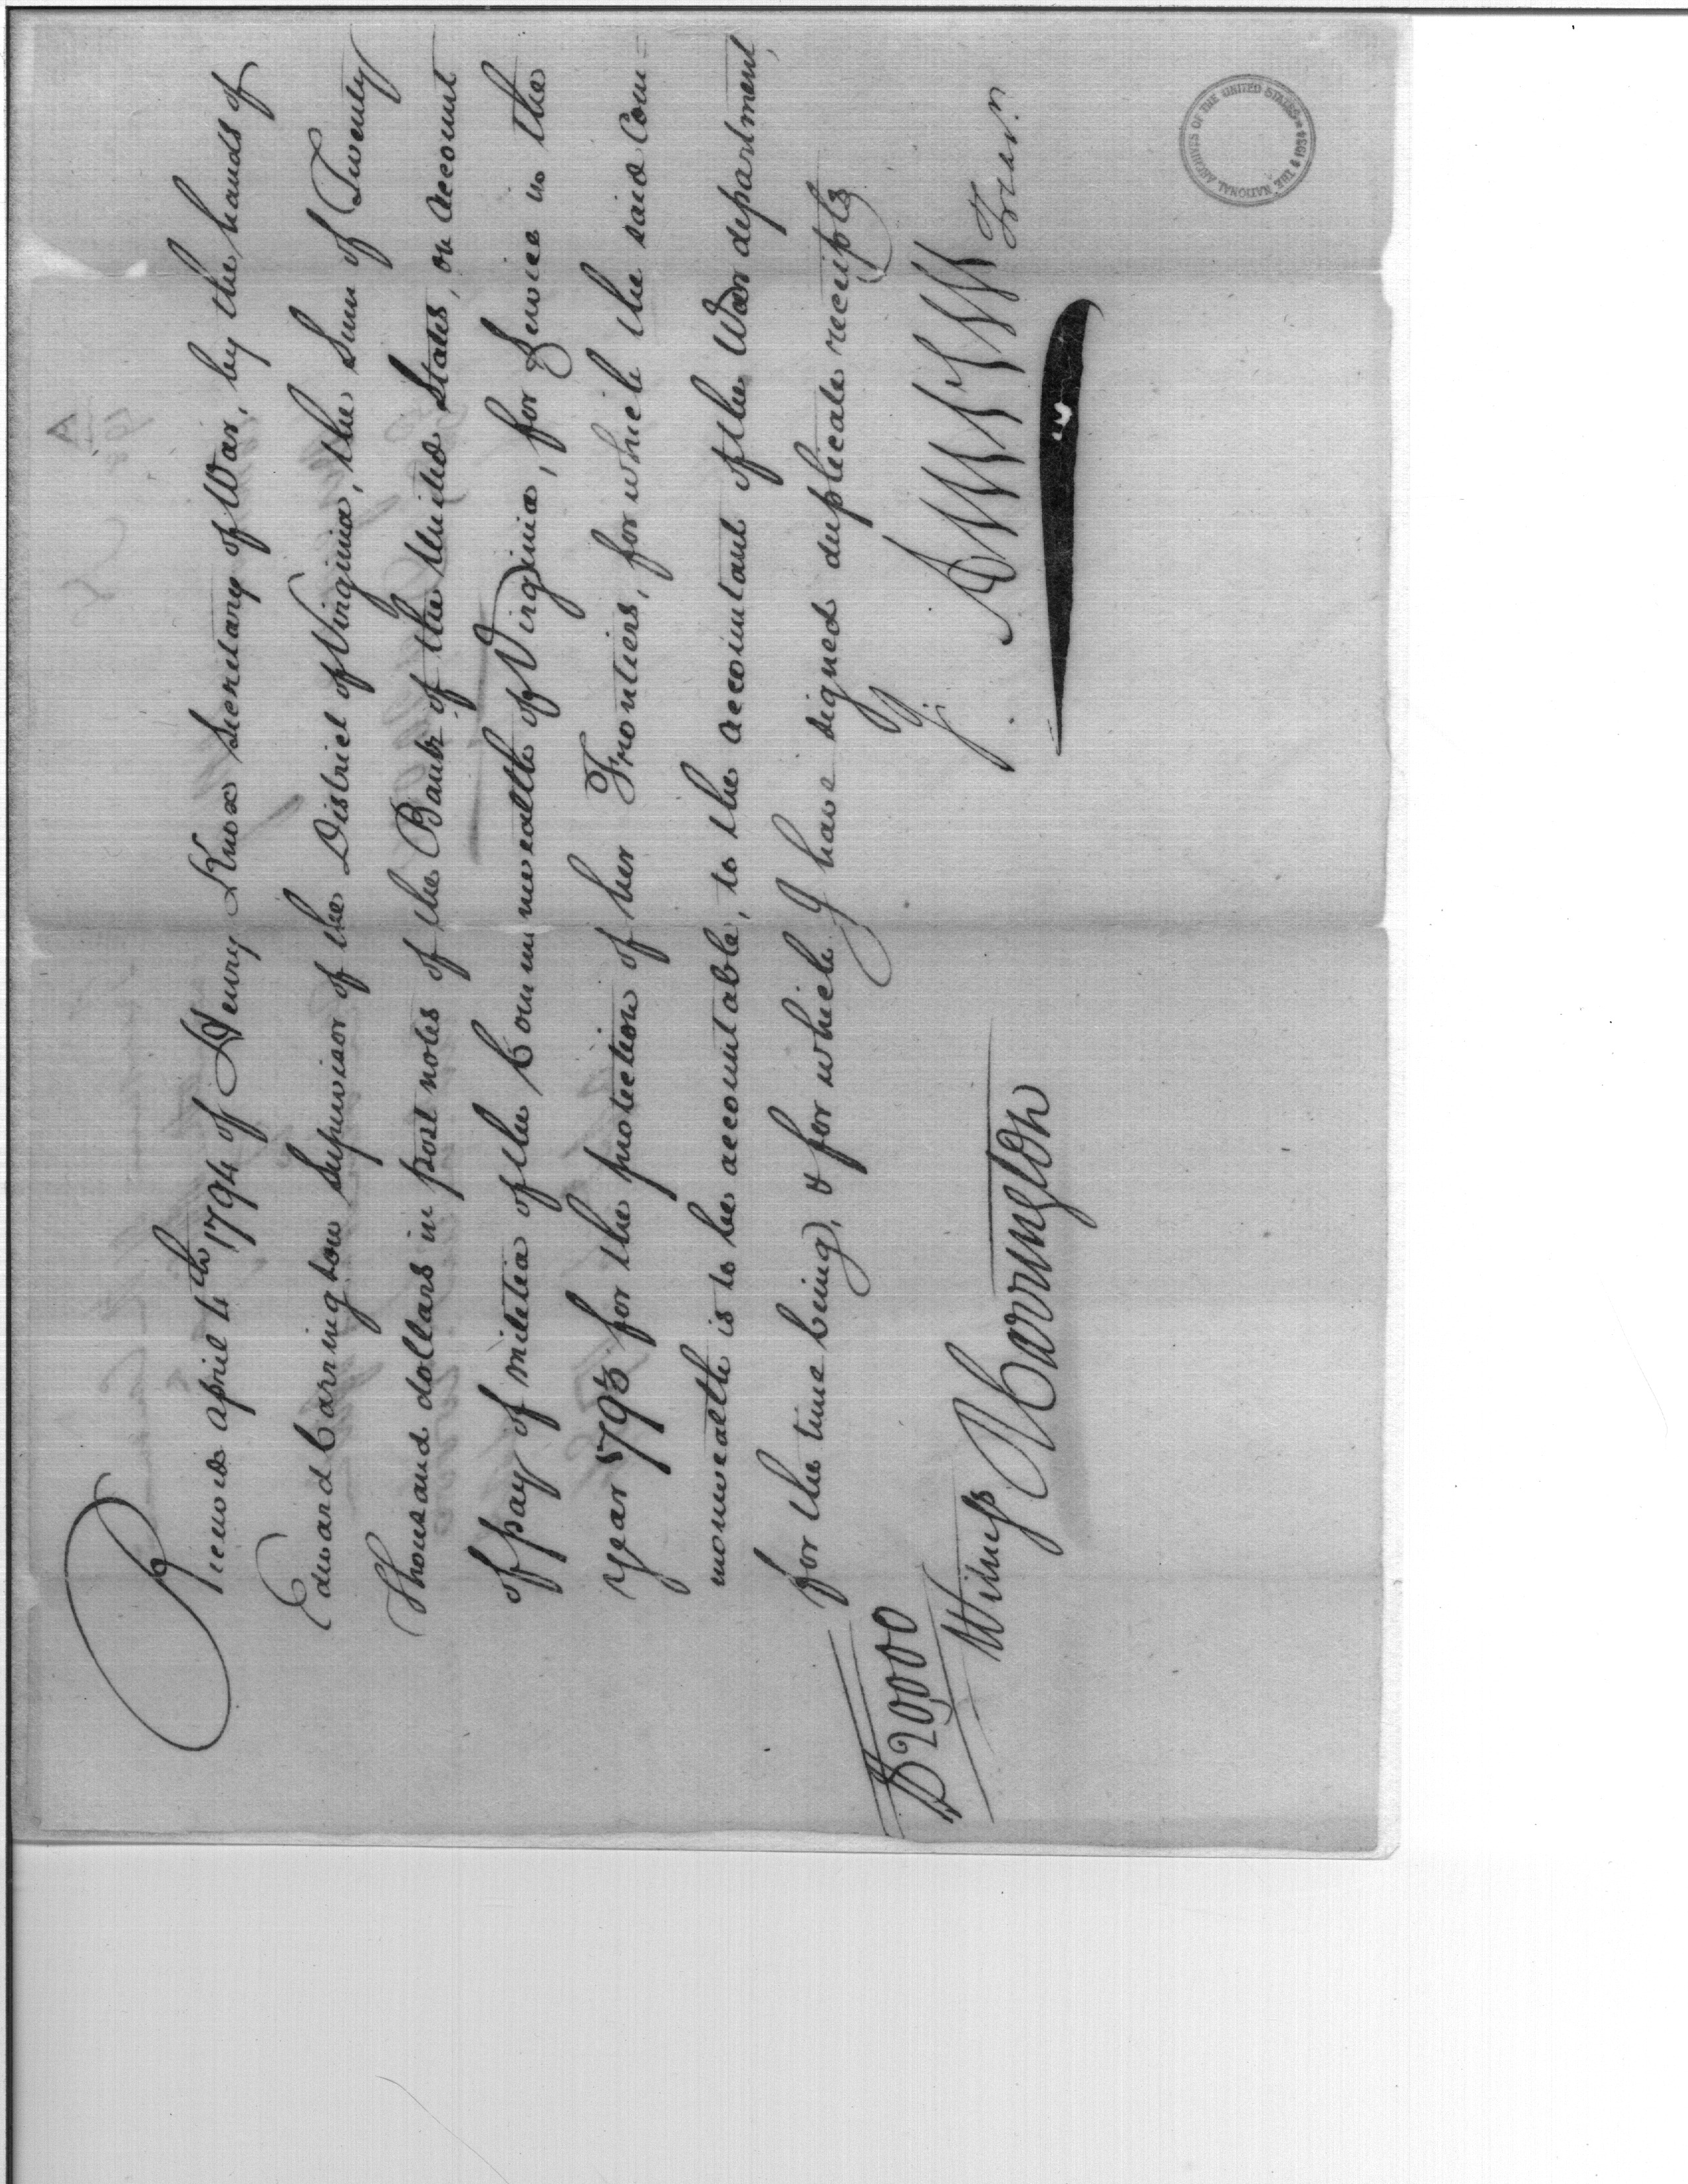 Received April 4th 1794 of Henry Knox Secretary of War, by the hands of
Edward Carrington Supervisor of the District of Virginia, the Sum of Twenty
Thousand dollars in post notes of the Bank of the United States, on account
of pay of militia of the Commonwealth of Virginia, for Service in the
year 1793 for the protection of her Frontiers, for which the said Com=
monwealth is to be accountable, to the accountant of the War department,
for the time being, & for which I have signed duplicate receipts
D 20,000
Witness
Carrington
J.
Treasr.
THE NATIONAL ARCHIVES OF THE UNITED STATES 1934